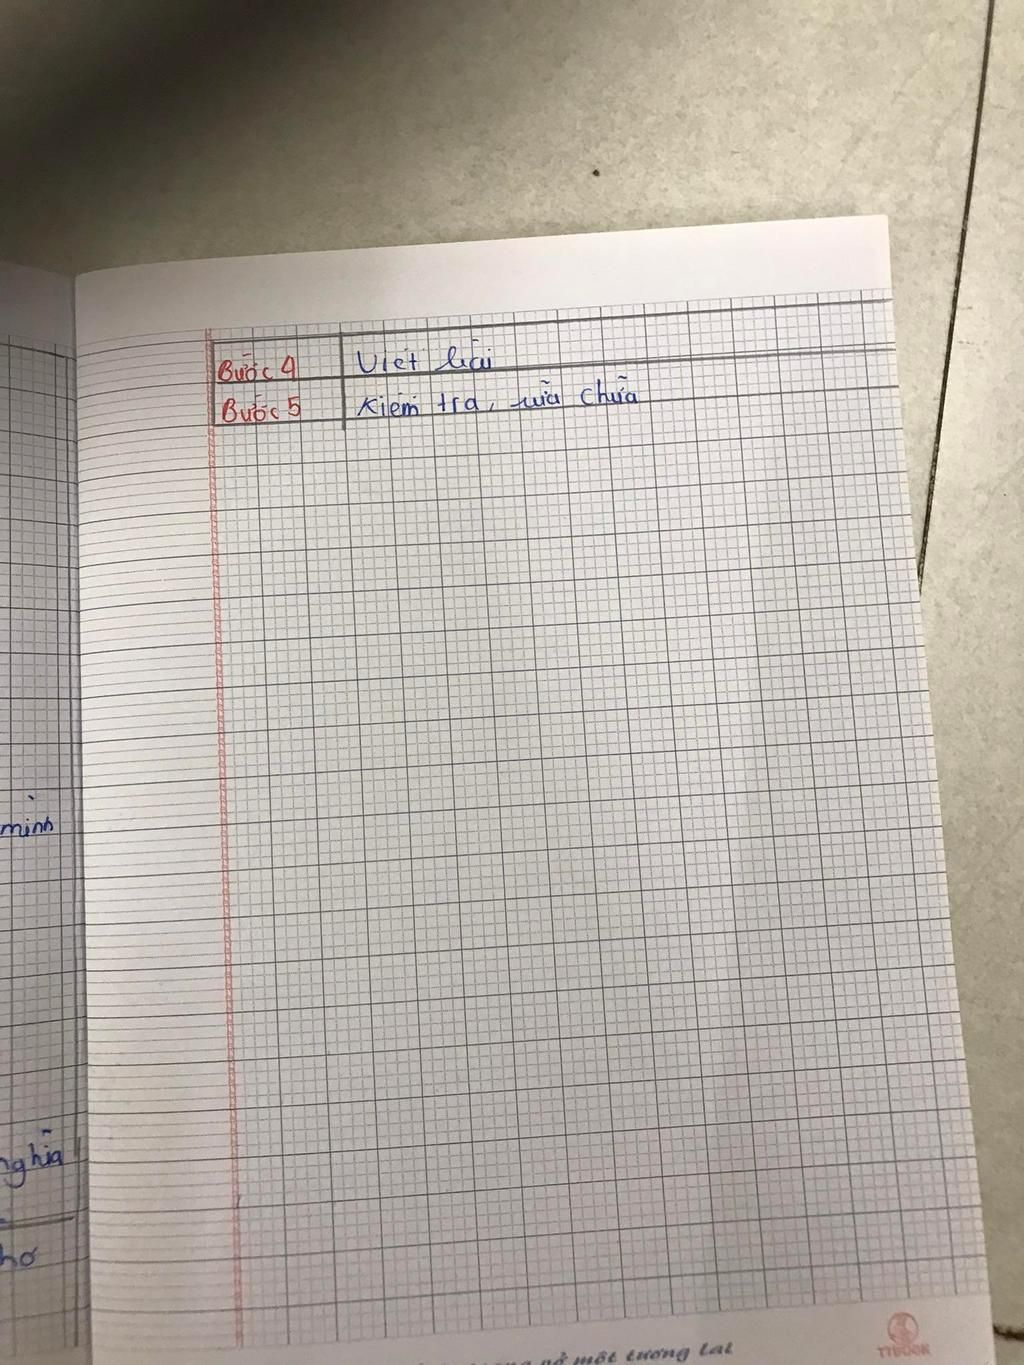 Bước 4 Viết bài
Bước 5 Kiểm tra, sửa chữa
minh
nghĩa
hơ
nở một tương lai
TTBOOK